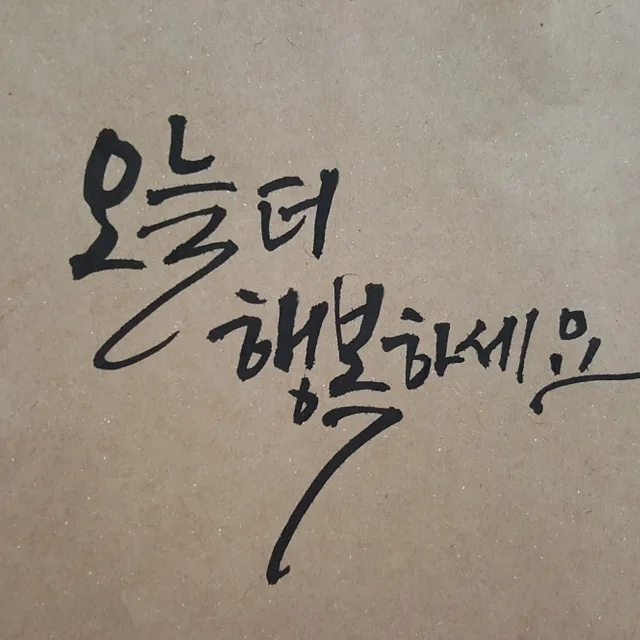 오늘 더
행복하세요